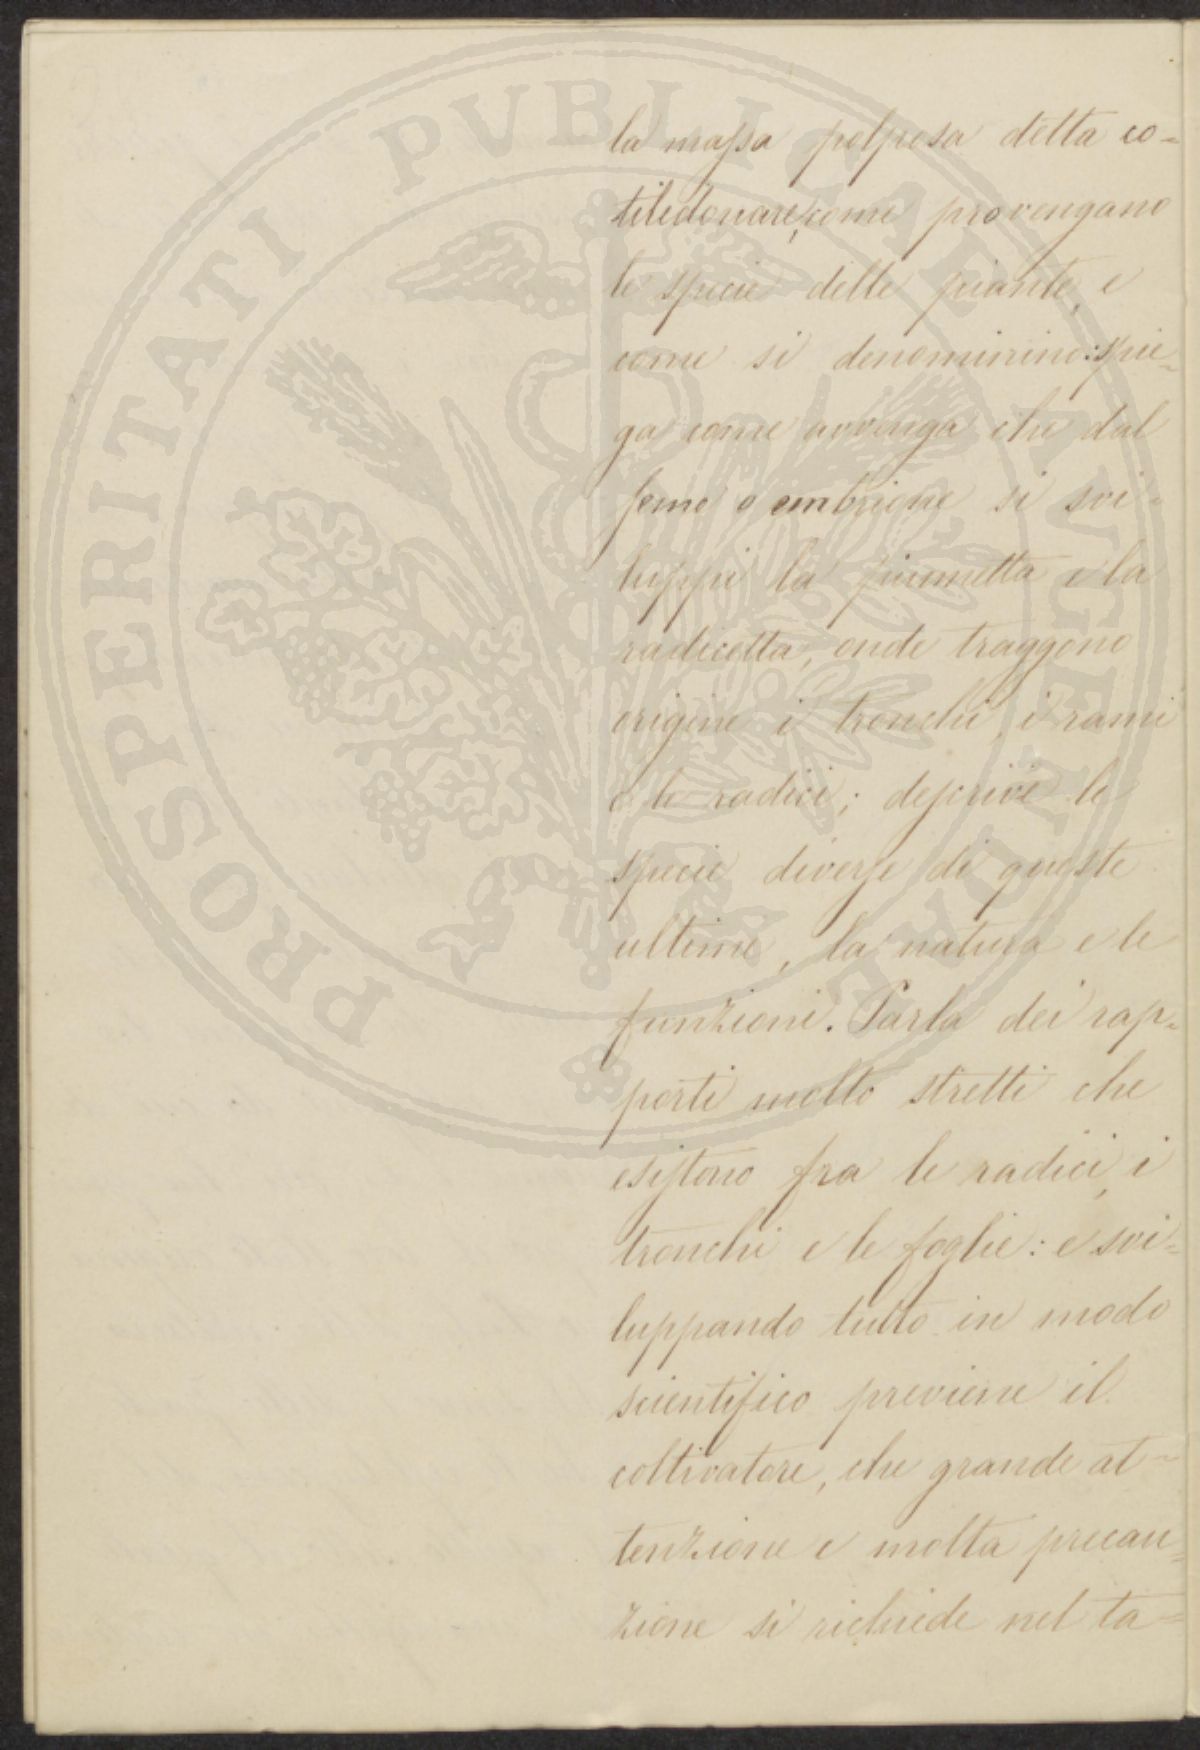 PROSPERITATI PUBLICAE AUGENDAE
la massa polposa detta co-
tiledonare, come provengano
le specie delle piante, e
come si denominino: spie-
ga come avvenga che dal
seme o embrione si svi-
luppi la piumetta e la
radicetta, onde traggono
origine i tronchi, i rami
e le radici; descrive le
specie diverse di queste
ultime, la natura e le
funzioni. Parla dei rap-
porti molto stretti che
esistono fra le radici, i
tronchi e le foglie: e svi-
luppando tutto in modo
scientifico previene il
coltivatore, che grande at-
tenzione e molta precau-
zione si richiede nel ta-